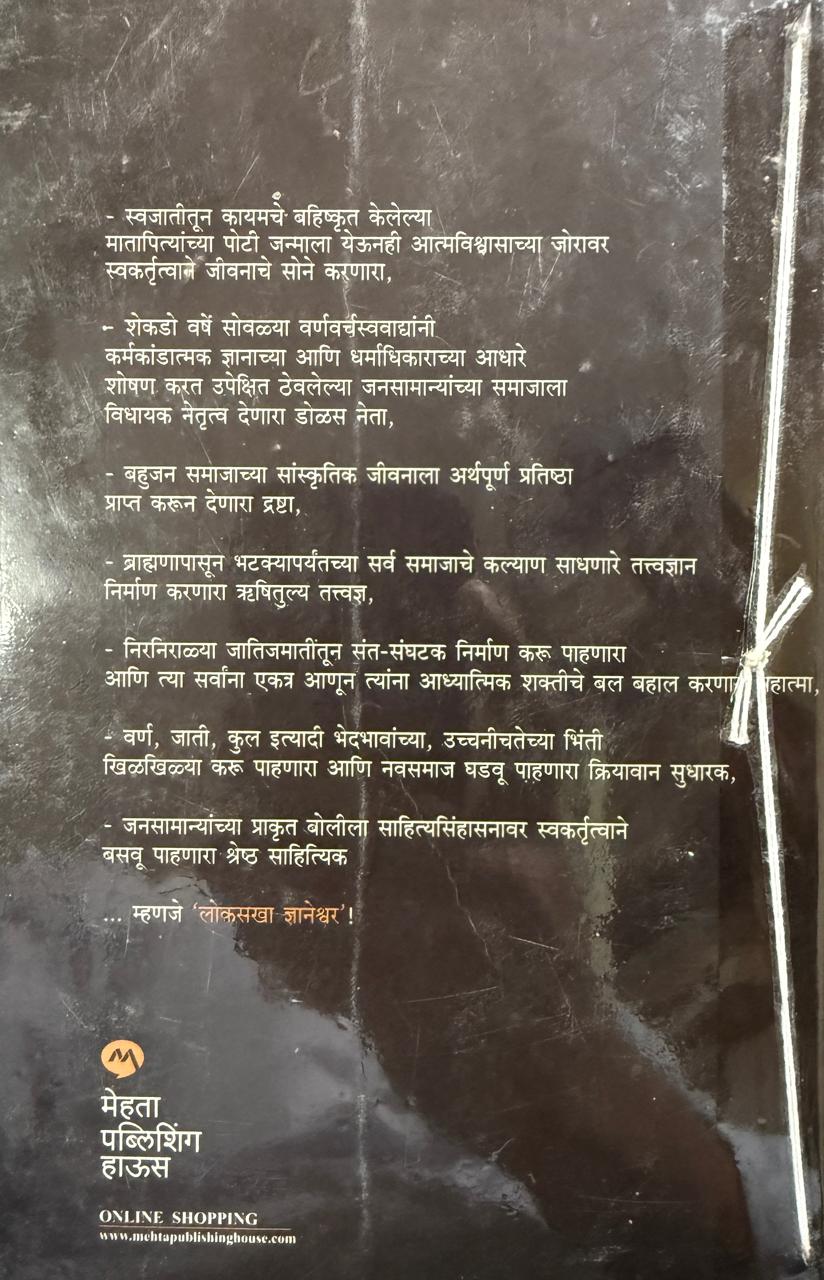 - स्वजातीतून कायमचे बहिष्कृत केलेल्या
मातापित्यांच्या पोटी जन्माला येऊनही आत्मविश्वासाच्या जोरावर
स्वकर्तृत्वाने जीवनाचे सोने करणारा,
- शेकडो वर्षे सोवळ्या वर्णवर्चस्ववाद्यांनी
कर्मकांडात्मक ज्ञानाच्या आणि धर्माधिकाराच्या आधारे
शोषण करत उपेक्षित ठेवलेल्या जनसामान्यांच्या समाजाला
विधायक नेतृत्व देणारा डोळस नेता,
- बहुजन समाजाच्या सांस्कृतिक जीवनाला अर्थपूर्ण प्रतिष्ठा
प्राप्त करून देणारा द्रष्टा,
- ब्राह्मणापासून भटक्यापर्यंतच्या सर्व समाजाचे कल्याण साधणारे तत्त्वज्ञान
निर्माण करणारा ऋषितुल्य तत्त्वज्ञ,
- निरनिराळ्या जातिजमातींतून संत-संघटक निर्माण करू पाहणारा
आणि त्या सर्वांना एकत्र आणून त्यांना आध्यात्मिक शक्तीचे बल बहाल
- वर्ण, जाती, कुल इत्यादी भेदभावांच्या, उच्चनीचतेच्या भिंती
खिळखिळ्या करू पाहणारा आणि नवसमाज घडवू पाहणारा क्रियावान सुधारक,
- जनसामान्यांच्या प्राकृत बोलीला साहित्यसिंहासनावर स्वकर्तृत्वाने
बसवू पाहणारा श्रेष्ठ साहित्यिक
... म्हणजे ‘लोकसखा ज्ञानेश्वर’!
मेहता
पब्लिशिंग
हाऊस
ONLINE SHOPPING
www.mehtapublishinghouse.com